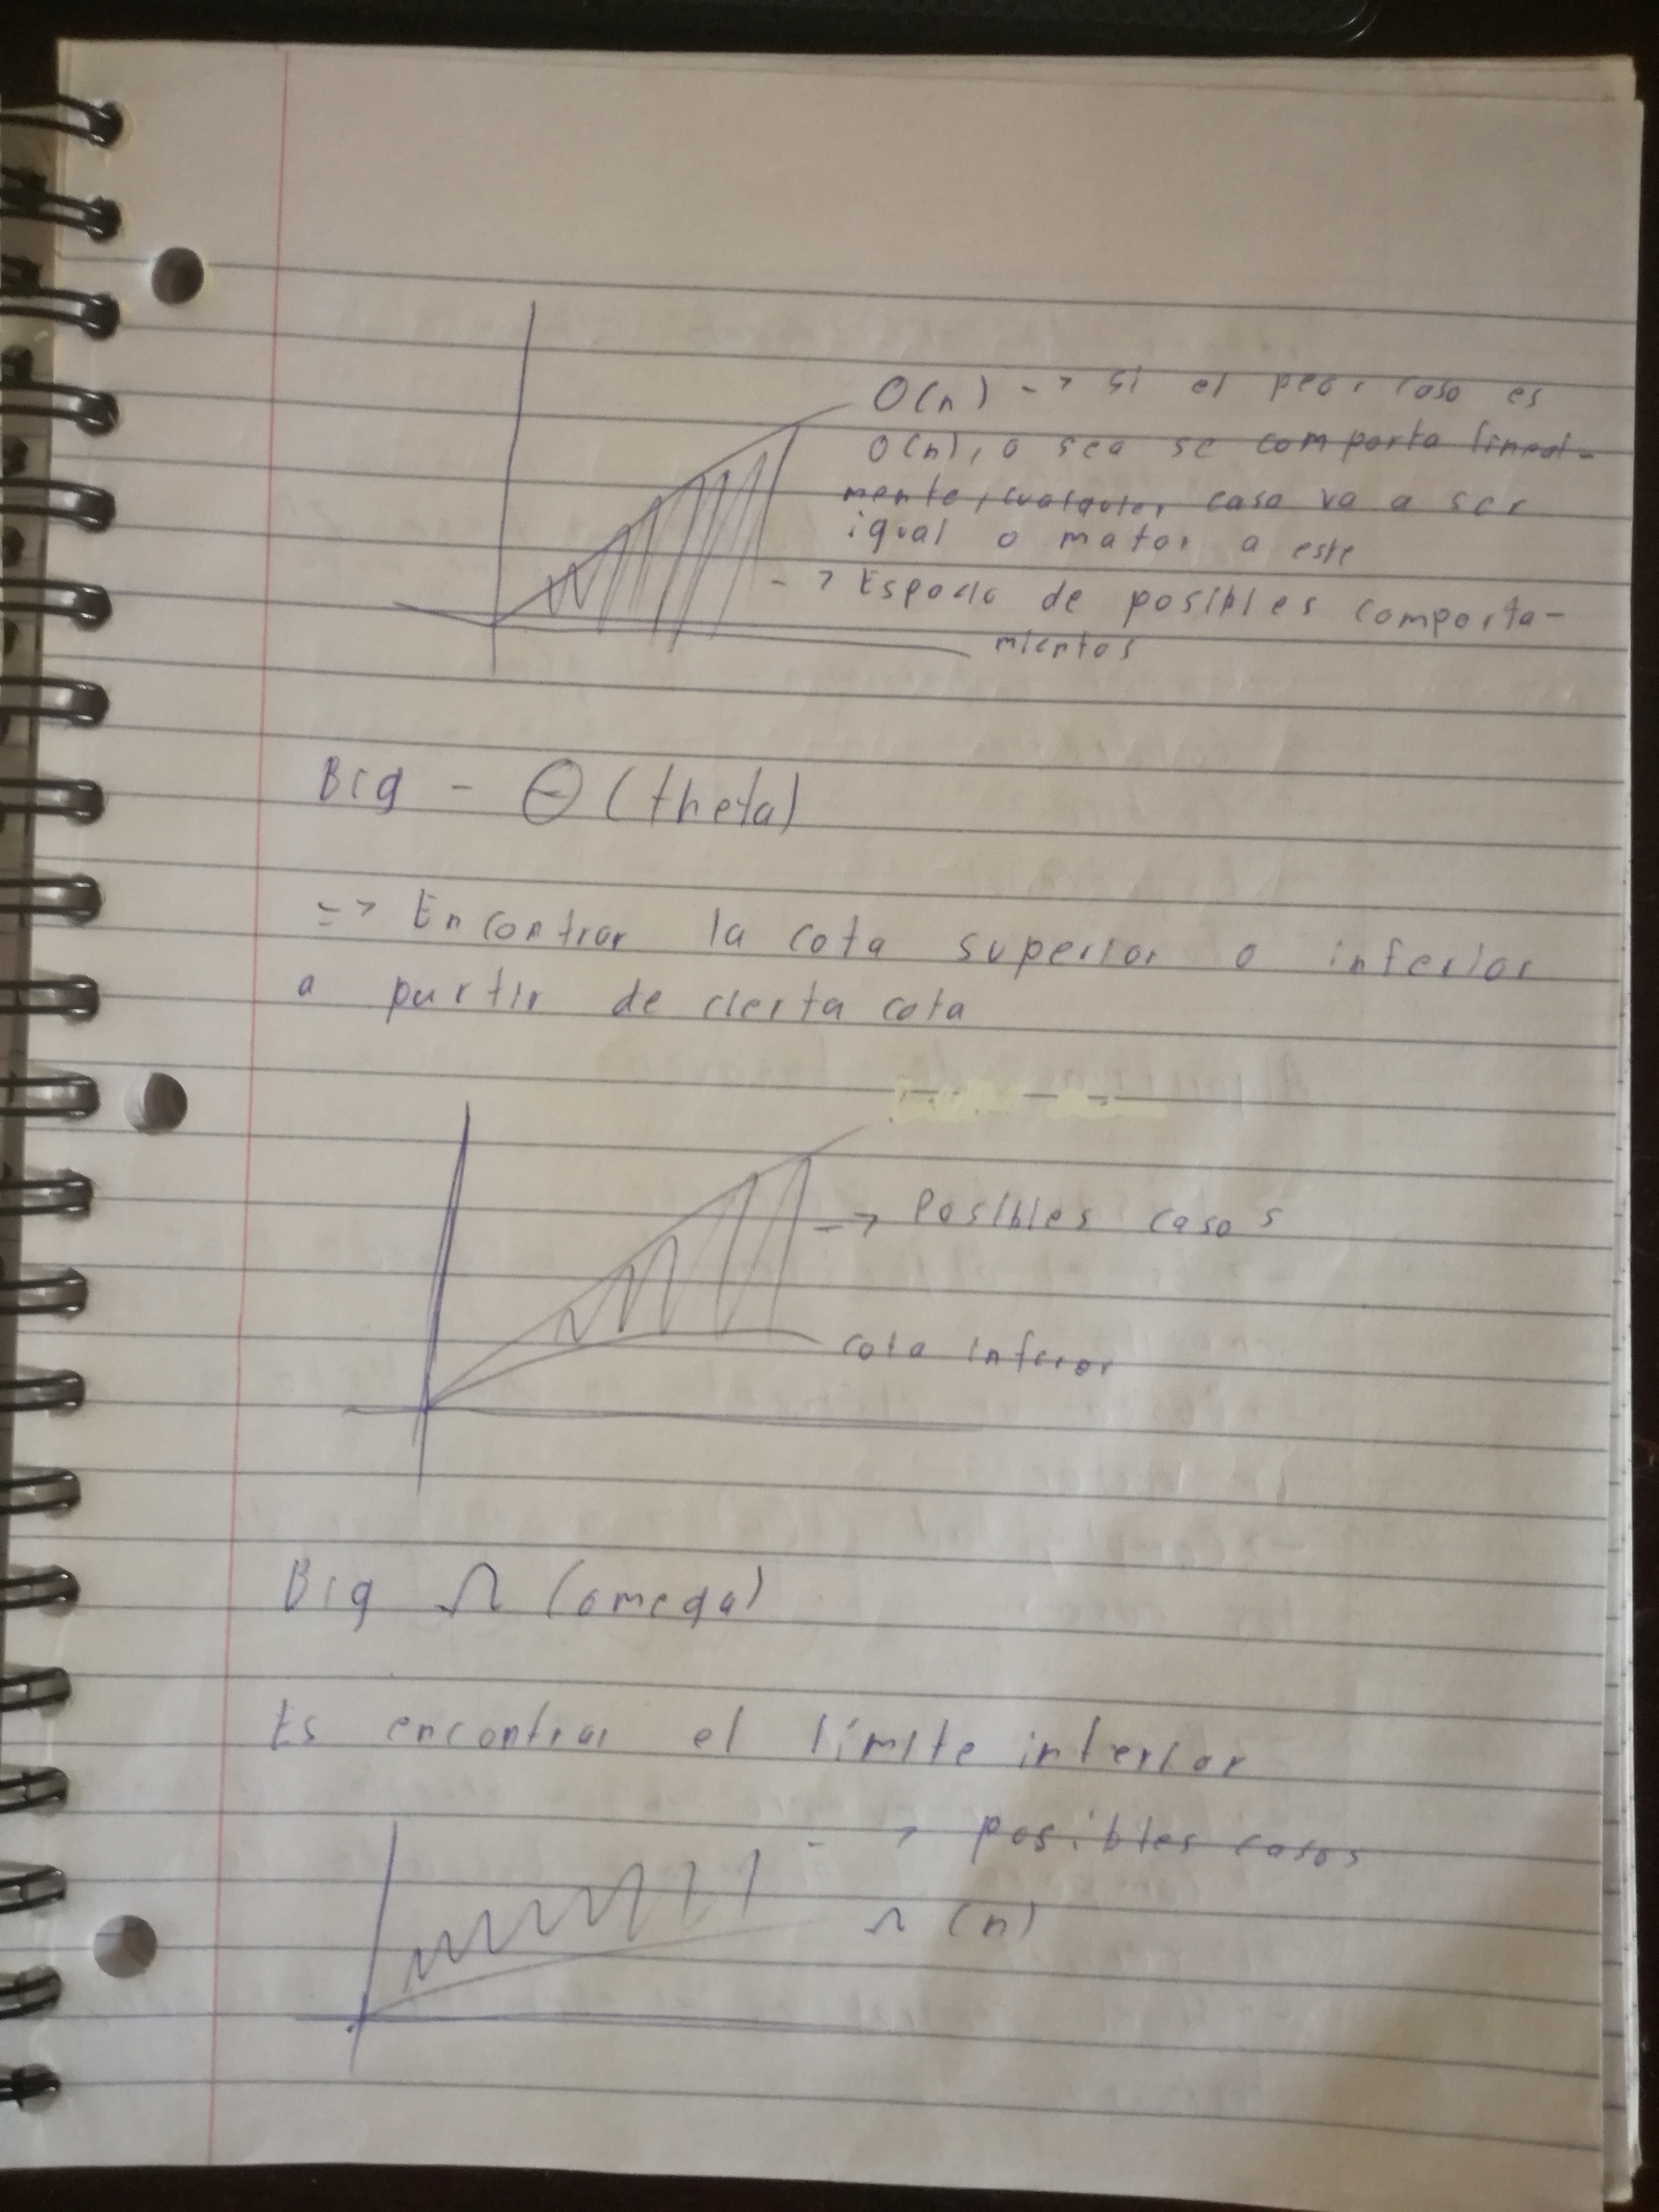 O(n) -> si el peor caso es
O(n), o sea se comporta lineal-
mente, cualquier caso va a ser
igual o mator a este
-> Espacio de posibles comporta-
mientos
Big - Θ (theta)
=> Encontrar la cota superior o inferior
a partir de cierta cota
-> Posibles casos
cota inferior
Big Ω (omega)
Es encontrar el límite inferior
-> posibles casos
Ω (n)